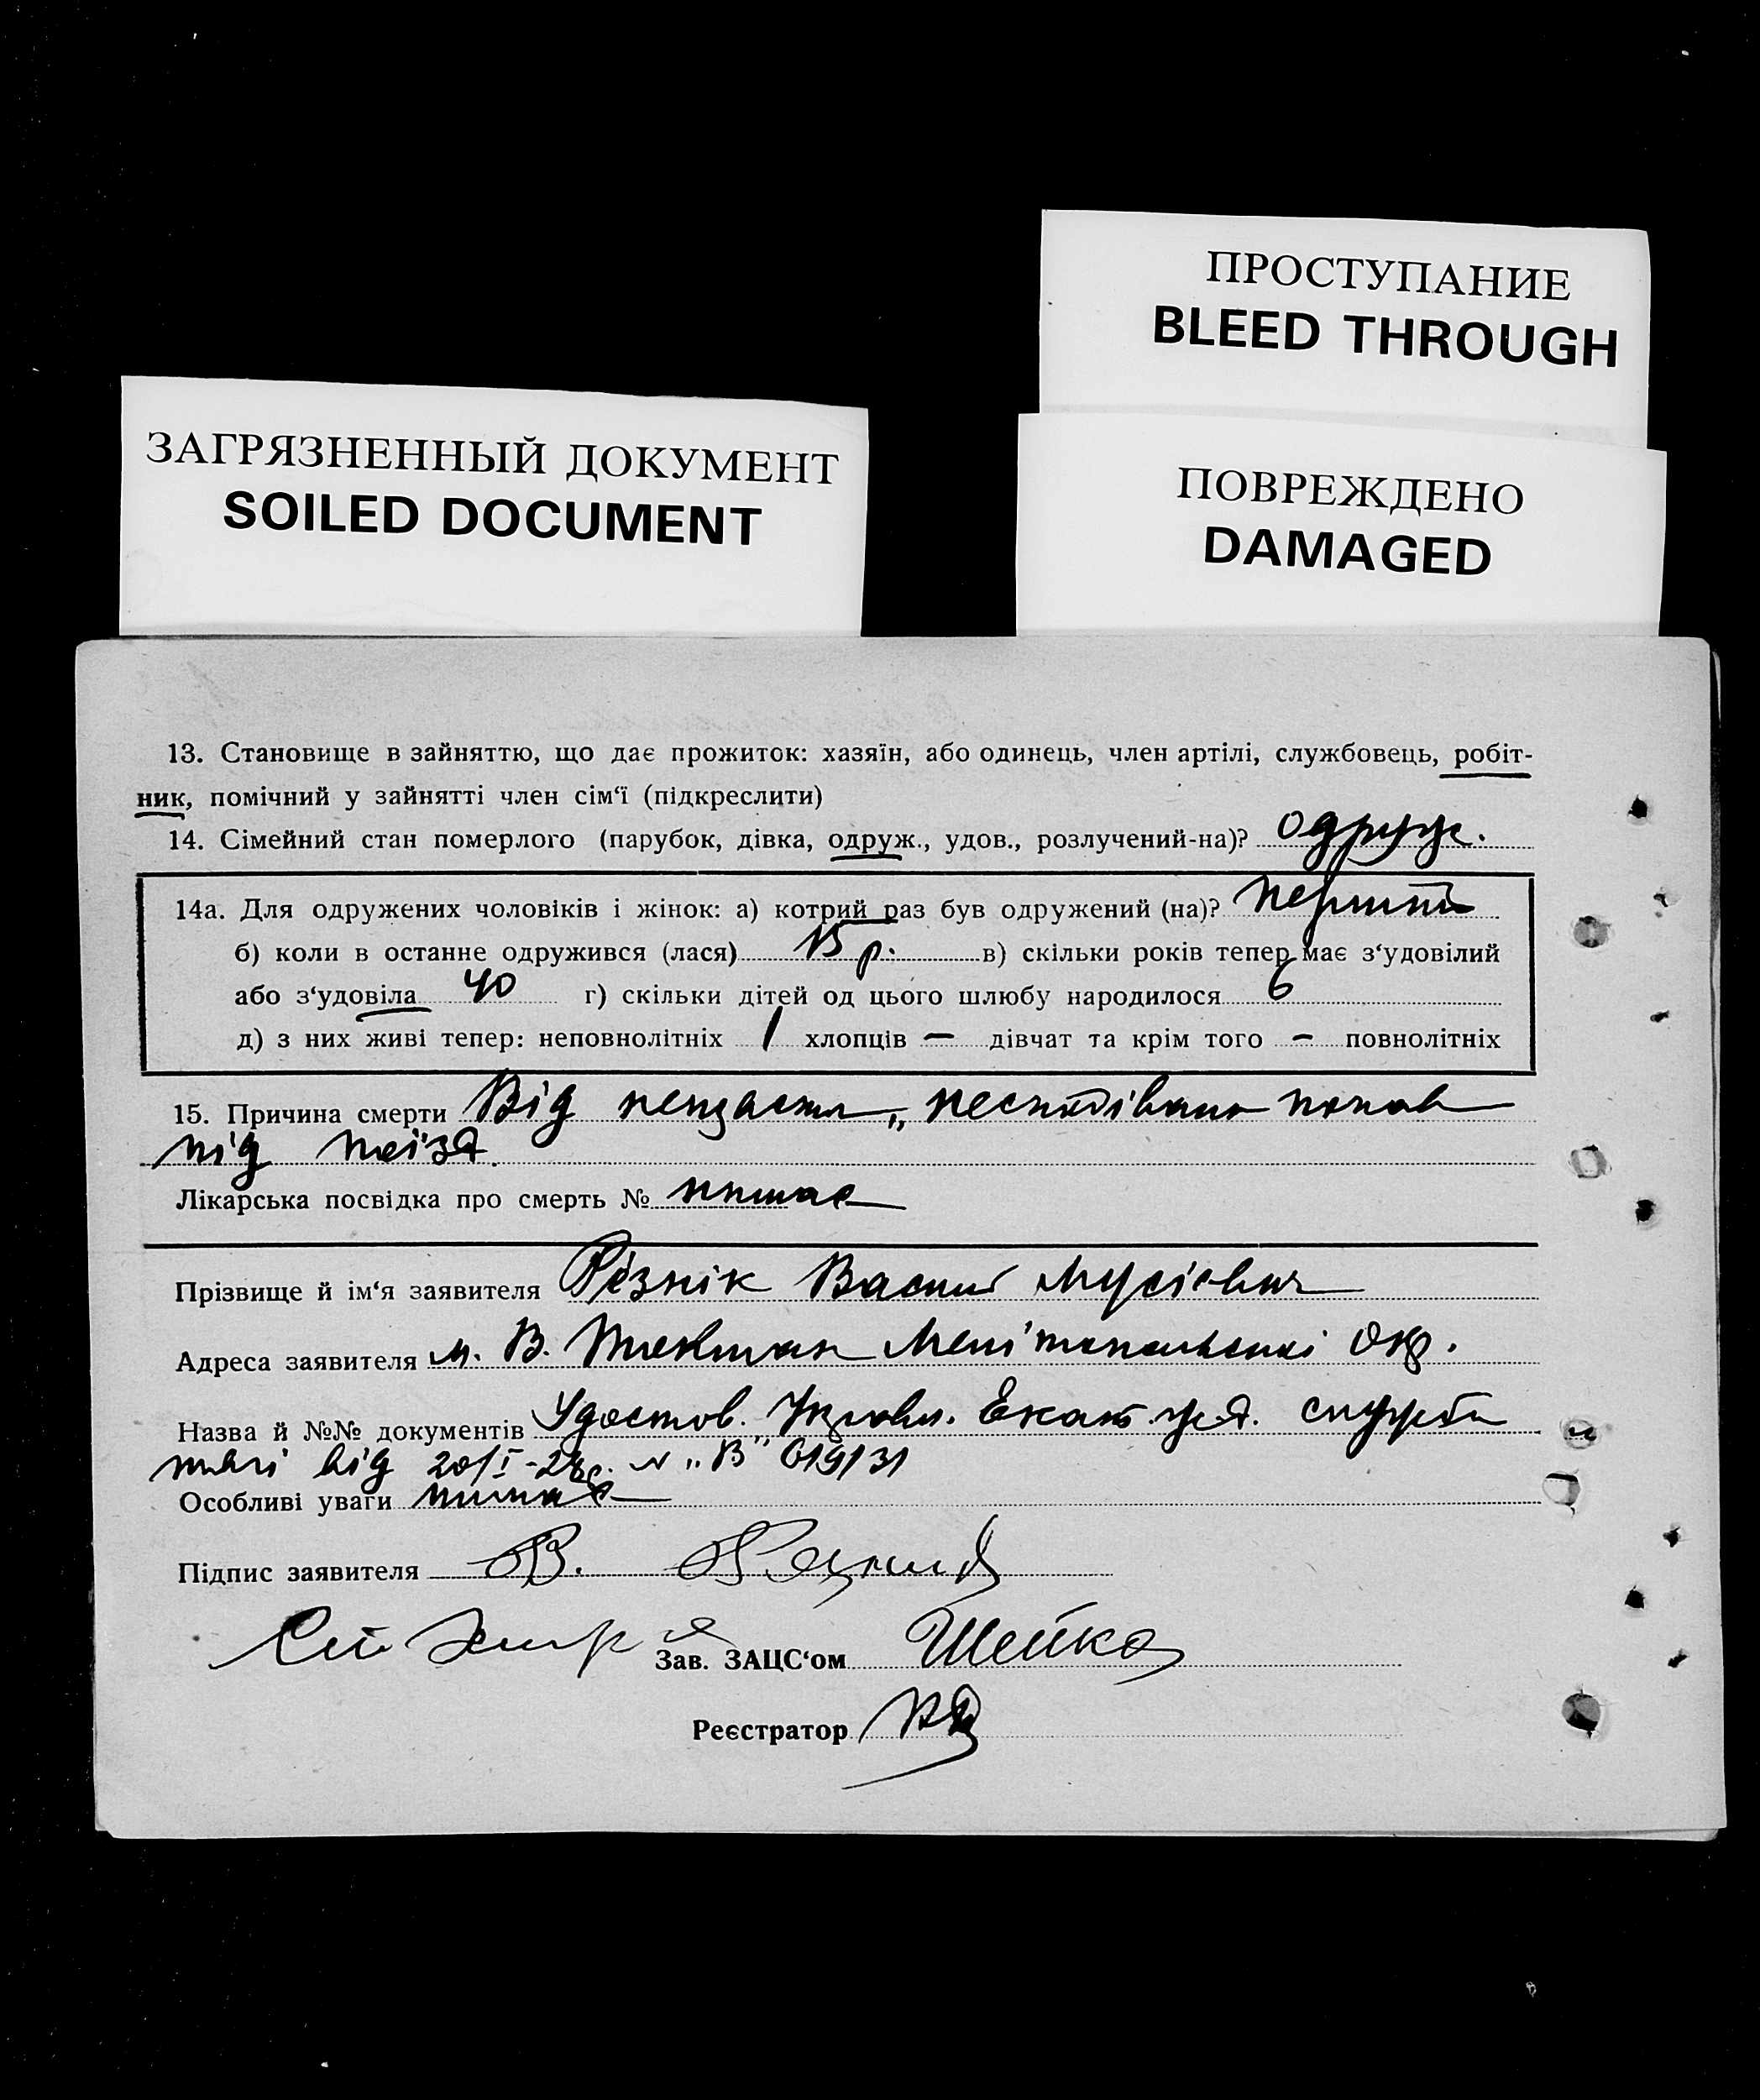 ПРОСТУПАНИЕ
BLEED THROUGH
ЗАГРЯЗНЕННЫЙ ДОКУМЕНТ
SOILED DOCUMENT
ПОВРЕЖДЕНО
DAMAGED
13. Становище в зайняттю, що дає прожиток: хазяїн, або одинець, член артілі, службовець, робіт-
ник, помічний у зайнятті член сім‘ї (підкреслити)
14. Сімейний стан померлого (парубок, дівка, одруж., удов., розлучений-на)? одруж.
14а. Для одружених чоловіків і жінок: а) котрий раз був одружений (на)? перший
б) коли в останне одружився (лася) р. в) скільки років тепер має з‘удовілий
або з‘удовіла 40 г) скільки дітей од цього шлюбу народилося 6
д) з них живі тепер: неповнолітніх 1 хлопців — дівчат та крім того — повнолітніх
15. Причина смерти Від нещастя, несподівано попав
під поїзд.
Лікарська посвідка про смерть № немає
Прізвище й ім‘я заявителя Рєзнік Василь Мусієвич
Адреса заявителя м. В. Токмак Мелітопольської Окр.
Назва й №№ документів Удостов. Екат. служби
тяги від 20/I-28р. № „В" 019131
Особливі уваги немає
Підпис заявителя В.
Зав. ЗАЦС‘ом Шейко
Реєстратор